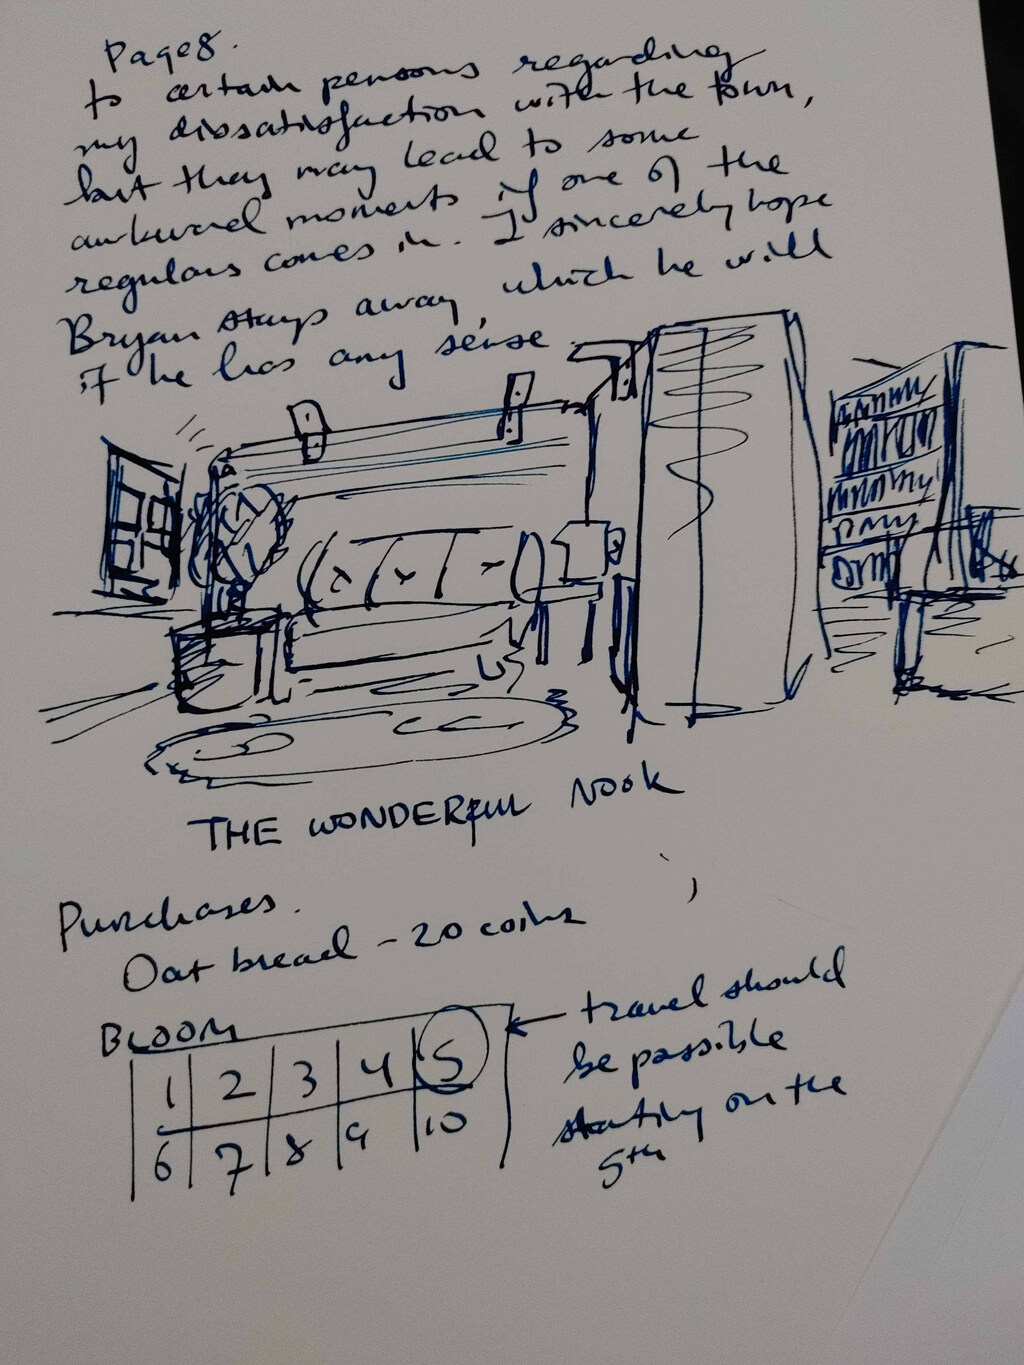 Page 8.
to certain persons regarding
my dissatisfaction with the town,
but they may lead to some
awkward moments if one of the
regulars comes in. I sincerely hope
Bryan stays away, which he will
if he has any sense.
THE WONDERFUL NOOK
Purchases.
Oat bread - 20 coins
BLOOM
1 2 3 4 5
6 7 8 9 10
← travel should
be possible
starting on the
5th